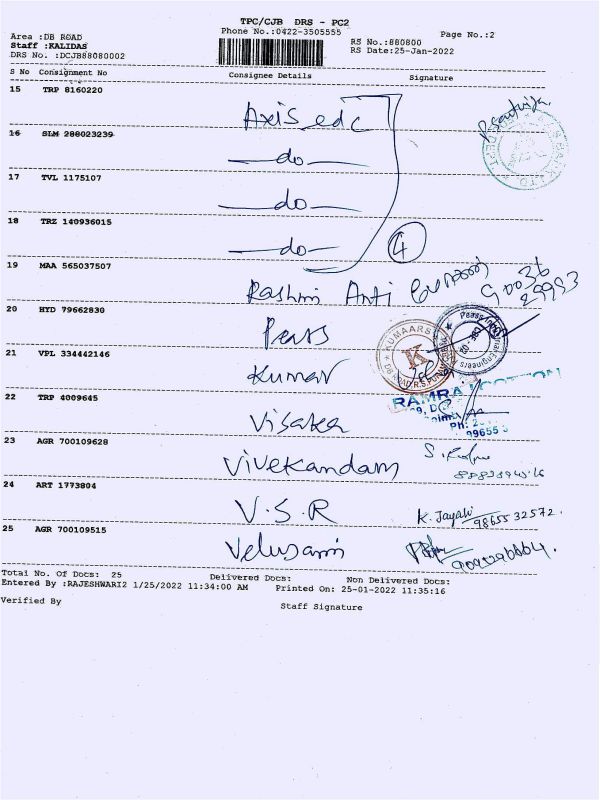 TPC/CJB DRS - PC2
Phone No.:0422-3505555
Page No.:2
Area :DB ROAD
RS No.:880800
Staff :KALIDAS
RS Date:25-Jan-2022
DRS No. :DCJB88080002
S No Consignment No Consignee Details Signature
15 TRP 8160220
Axis edc
16 SLM 288023239
—do—
17 TVL 1175107
—do—
18 TRZ 140936015
—do— 4
19 MAA 565037507
Rashmi Anti
20 HYD 79662830
Pears
21 VPL 334442146
Kumar
KUMAARS
K
22 TRP 4009645
Visaka
23 AGR 700109628
Vivekandam
24 ART 1773804
V.S.R
K. Jayahi 9865532572.
25 AGR 700109515
Velusami
Total No. Of Docs: 25 Delivered Docs: Non Delivered Docs:
Entered By :RAJESHWARI2 1/25/2022 11:34:00 AM Printed On: 25-01-2022 11:35:16
Verified By Staff Signature